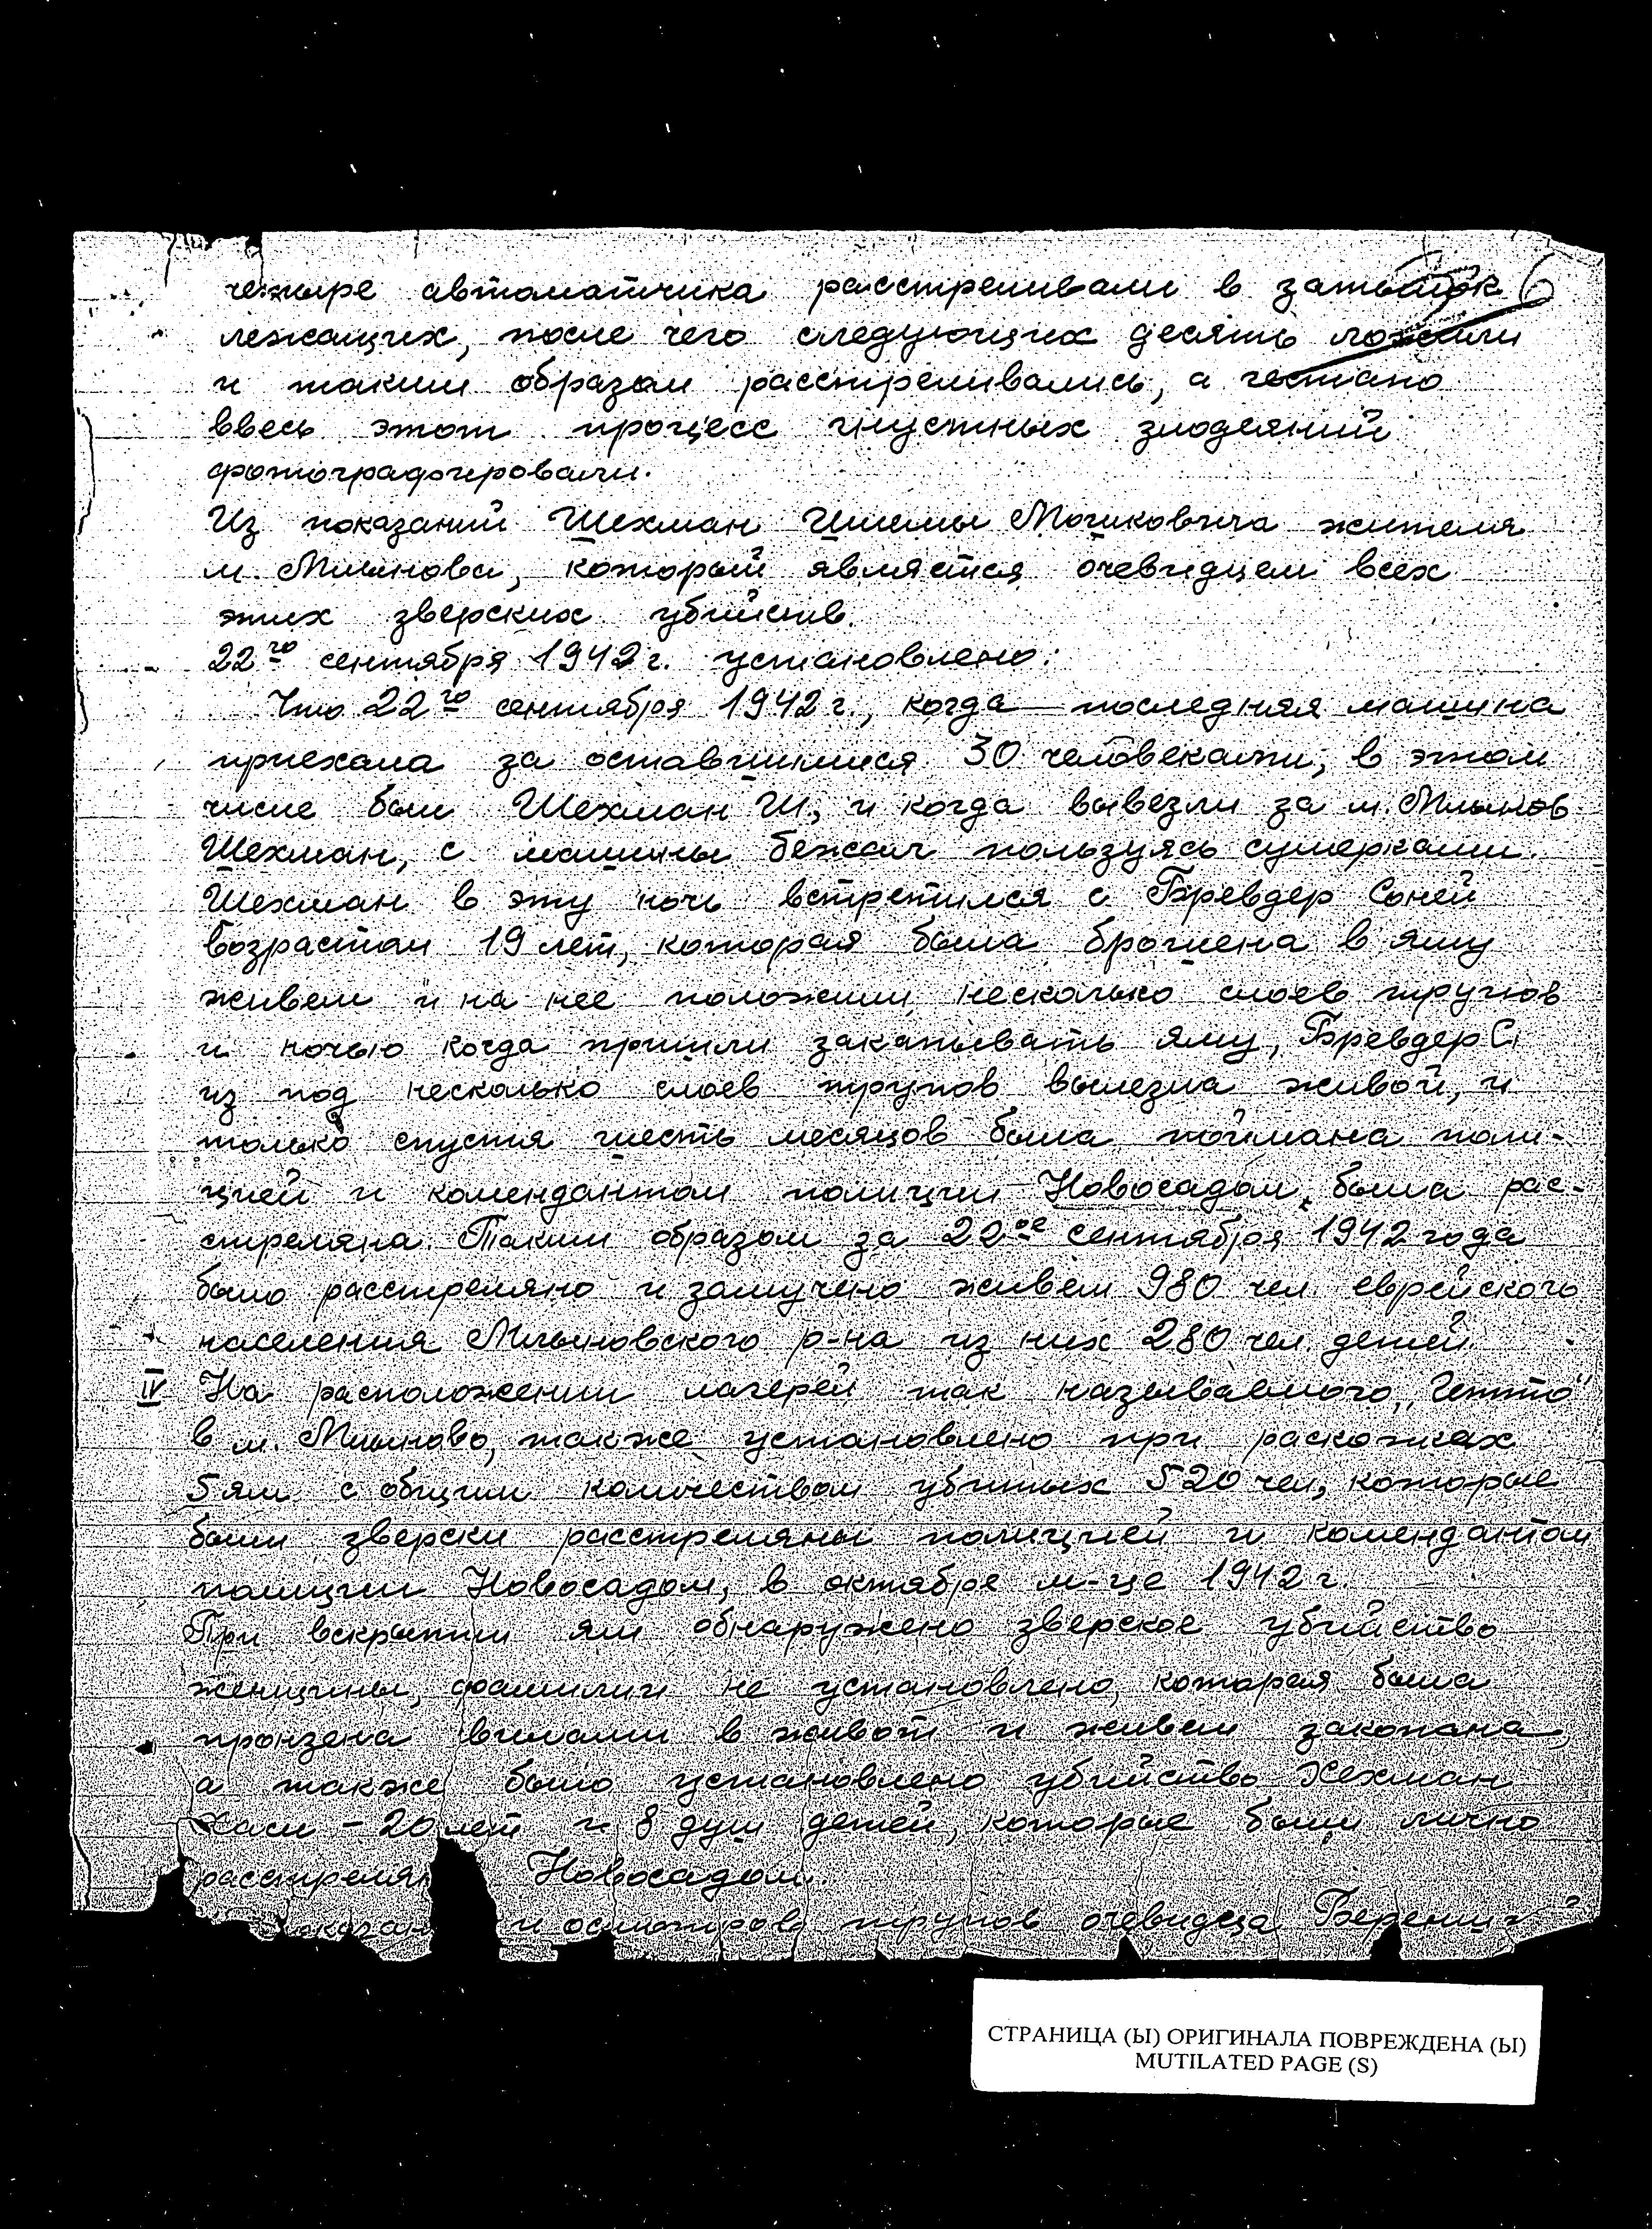 четыре автоматчика расстреливали в затылок 6
лежащих, после чего следующих десять ложили
и таким образом расстреливались, а гестапо
ввесь этот процесс гнустных злодеяний
фотографировали.
Из показаний Шехман Шлемы Мошковича жителя
м. Млынова, который является очевидцем всех
этих зверских убийств.
22го сентября 1942 г. установлено:
Что 22го сентября 1942 г., когда последняя машина
приехала за оставшимися 30 человеками, в этом
числе был Шехман Ш, и когда вывезли за м. Млынов
Шехман, с машины бежал пользуясь сумерками.
Шехман в эту ночь встретился с Бревдер Соней
возрастом 19 лет, которая была брошена в яму
живем и на нее положили несколько слоев трупов
и ночью когда пришли закапывать яму, Бревдер С.
из под несколько слоев трупов вылезла живой, и
только спустя шесть месяцов была поймана поли-
цией и комендантом полиции Новосадом, была рас-
стреляна. Таким образом за 22ое сентября 1942 года
было расстреляно и замучено живем 980 чел. еврейского
населения Млыновского р-на из них 280 чел. детей.
IV На расположении лагерей так называемого „Гетто"
в м. Млыново, также установлено при раскопках
5 ям с общим количеством убитых 520 чел, которые
были зверски расстреляны полицией и комендантом
полиции Новосадом, в октябре м-це 1942 г.
При вскрытии ям обнаружено зверское убийство
женщины, фамилии не установлено, которая была
пронзена вилами в живот и живем закопана,
а также было установлено убийство Хехман
Хаси - 20 лет и 8 душ детей, которые были лично
расстрелян Новосадом.
и осмотров трупов очевидца
СТРАНИЦА (Ы) ОРИГИНАЛА ПОВРЕЖДЕНА (Ы)
MUTILATED PAGE (S)